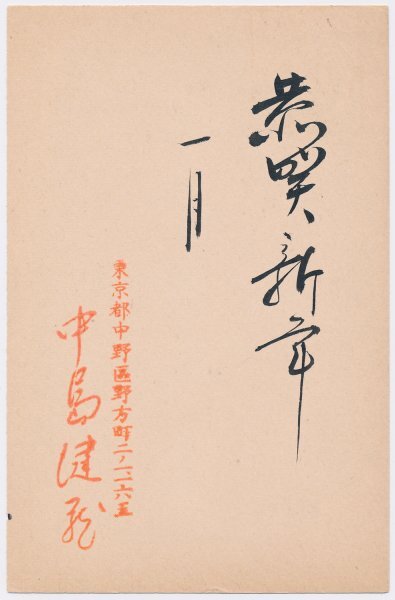 恭賀新年
一月
東京都中野區野方町二ノ一一六五
中島健蔵